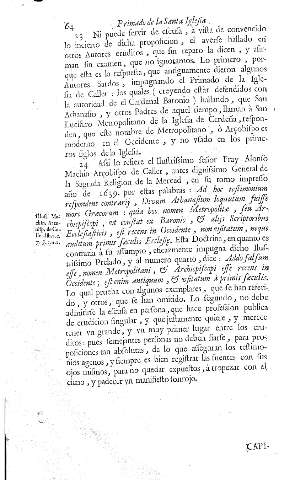 64 Primado de la Santa Iglesia
23 Ni puede servir de escusa, à vista de convencido
lo incierto de dicha proposicion, el averse hallado en
otros Autores eruditos, que sin reparo la dicen, y afir-
man sin examen, que no ignoramos. Lo primero, por-
que esta es la respuesta, que antiguamente dieron algunos
Autores Sardos, impugnando el Primado de la Igle-
sia de Caller, los quales (creyendo estar defendidos con
la autoridad de el Cardinal Baronio) hallando, que San
Athanasio, y otros Padres de aquel tiempo, llaman à San
Lucifero Metropolitano de la Iglesia de Cerdeña, respon-
den, que este nombre de Metropolitano, ò Arçobispo es
moderno en el Occidente, y no usado en los prime-
ros siglos de la Iglesia.
24 Assi lo refiere el Ilustrissimo señor Fray Alonso
Machin Arçobispo de Caller, antes dignissimo General de
la Sagrada Religion de la Merced, en su tomo impresso
año de 1639. por estas palabras: Ad hoc testimonium
respondent contrarij, Divum Athanasium loquutum fuisse
more Græcorum: quia hoc nomen Metropolita, seu Ar-
chiepiscopi, ut constat in Baronio, & alijs Scriptoribus
Ecclesiasticis, est recens in Occidente, non usitatum,
primis sæculis Ecclesiæ. Esta Doctrina, en quanto es
contraria à su assumpto, eficazmente impugna dicho Ilus-
trissimo Prelado, y al numero quarto, dice: Addo falsum
esse, nomen Metropolitani, & Archiepiscopi esse recens in
Occidente; est enim antiquum, & usitatum à primis sæculis.
Lo qual prueba con algunos exemplares, que se han referi-
do, y otros, que se han omitido. Lo segundo, no debe
admitirse la escusa en persona, que hace profession publica
de erudicion singular, y que justamente quiere, y merece
tener un grande, y un muy primer lugar entre los eru-
ditos: pues semejantes personas no deben fiarse, para pro-
posiciones tan absolutas, de lo que asseguran los testimo-
nios agenos, y siempre es bien registrar las fuentes con sus
ojos mismos, para no quedar expuestos, à tropezar con el
cieno, y padecer un manifiesto sonrojo.
CAPI-